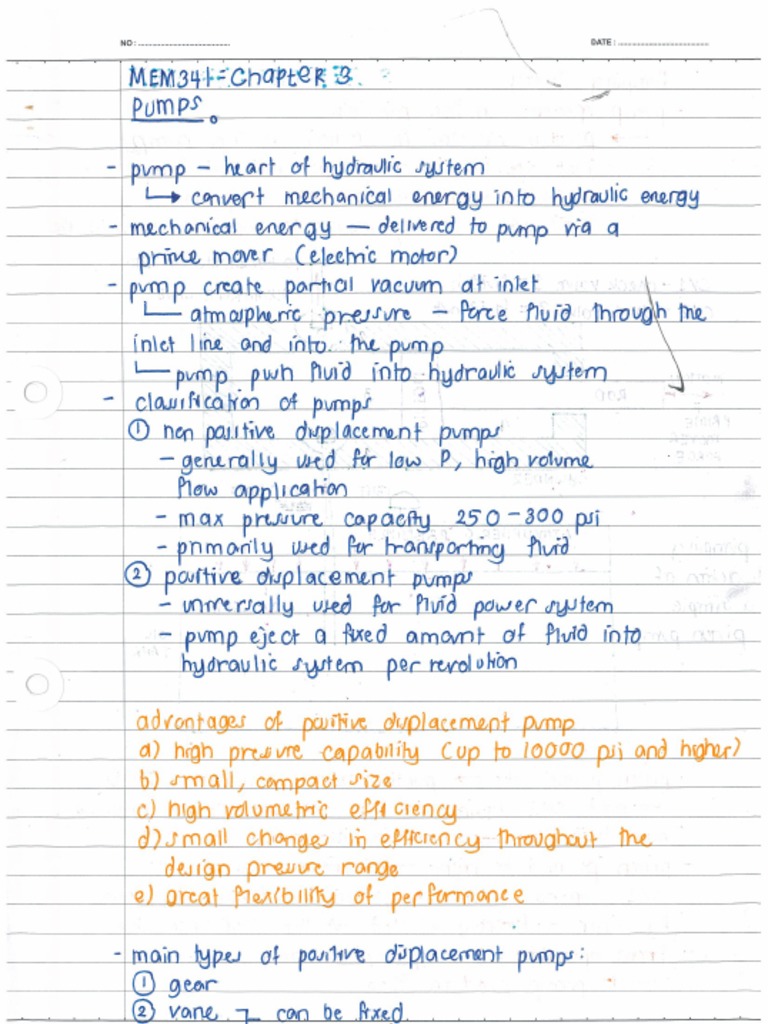 NO: DATE:
MEM341 - Chapter 3
Pumps.
- pump - heart of hydraulic system
↳ convert mechanical energy into hydraulic energy
- mechanical energy — delivered to pump via a
prime mover (electric motor)
- pump create partial vacuum at inlet
atmospheric pressure - force fluid through the
inlet line and into the pump
pump push fluid into hydraulic system
- classification of pumps
① non positive displacement pumps
- generally used for low P, high volume
flow application
- max pressure capacity 250-300 psi
- primarily used for transporting fluid
② positive displacement pumps
- universally used for fluid power system
- pump eject a fixed amount of fluid into
hydraulic system per revolution
advantages of positive displacement pump
a) high pressure capability (up to 10000 psi and higher)
b) small, compact size
c) high volumetric efficiency
d) small changes in efficiency throughout the
design pressure range
e) great flexibility of performance
- main types of positive displacement pumps:
① gear
② vane can be fixed